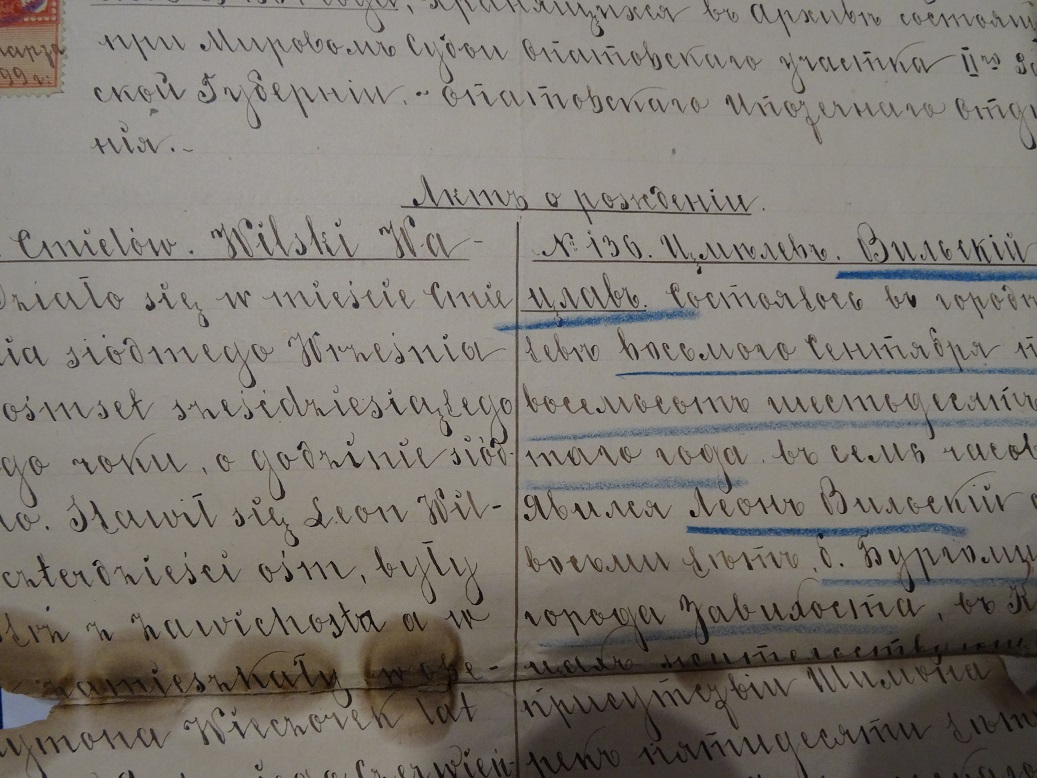 хранящихся въ Архивѣ состоящ
при Мировомъ Судьи Опатовскаго участка IIго
ской Губерніи. Опатовскаго Ипотечнаго отдѣ
нія.
Актъ о рожденіи.
Cmielów. Wilski Wa-
działo się w mieście Cmie
nia siódmego Września
ośmset sześćdziesiątego
go roku, o godzinie siód-
no. Stawił się Leon Wil-
czterdzieści ośm, były
strz z Zawichosta a w
zamieszkały w obe-
zymona Wieczorek lat
№ 136. Цмѣлевъ. Вильскій
цлавъ. Состоялось въ городѣ
левѣ восьмого Сентября
восемьсотъ шестьдесятъ
таго года въ семь часов
Явился Леонъ Вильскій
восьми лѣтъ, б. Бургоми
города Завихоста, въ
жительствующ
присутствіи Шимона
рекъ пятидесяти лѣтъ